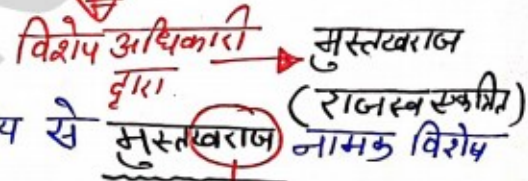 विशेष अधिकारी → मुस्तखराज
द्वारा
(राजस्व एकत्रित)
य से मुस्तखराज नामक विशेष